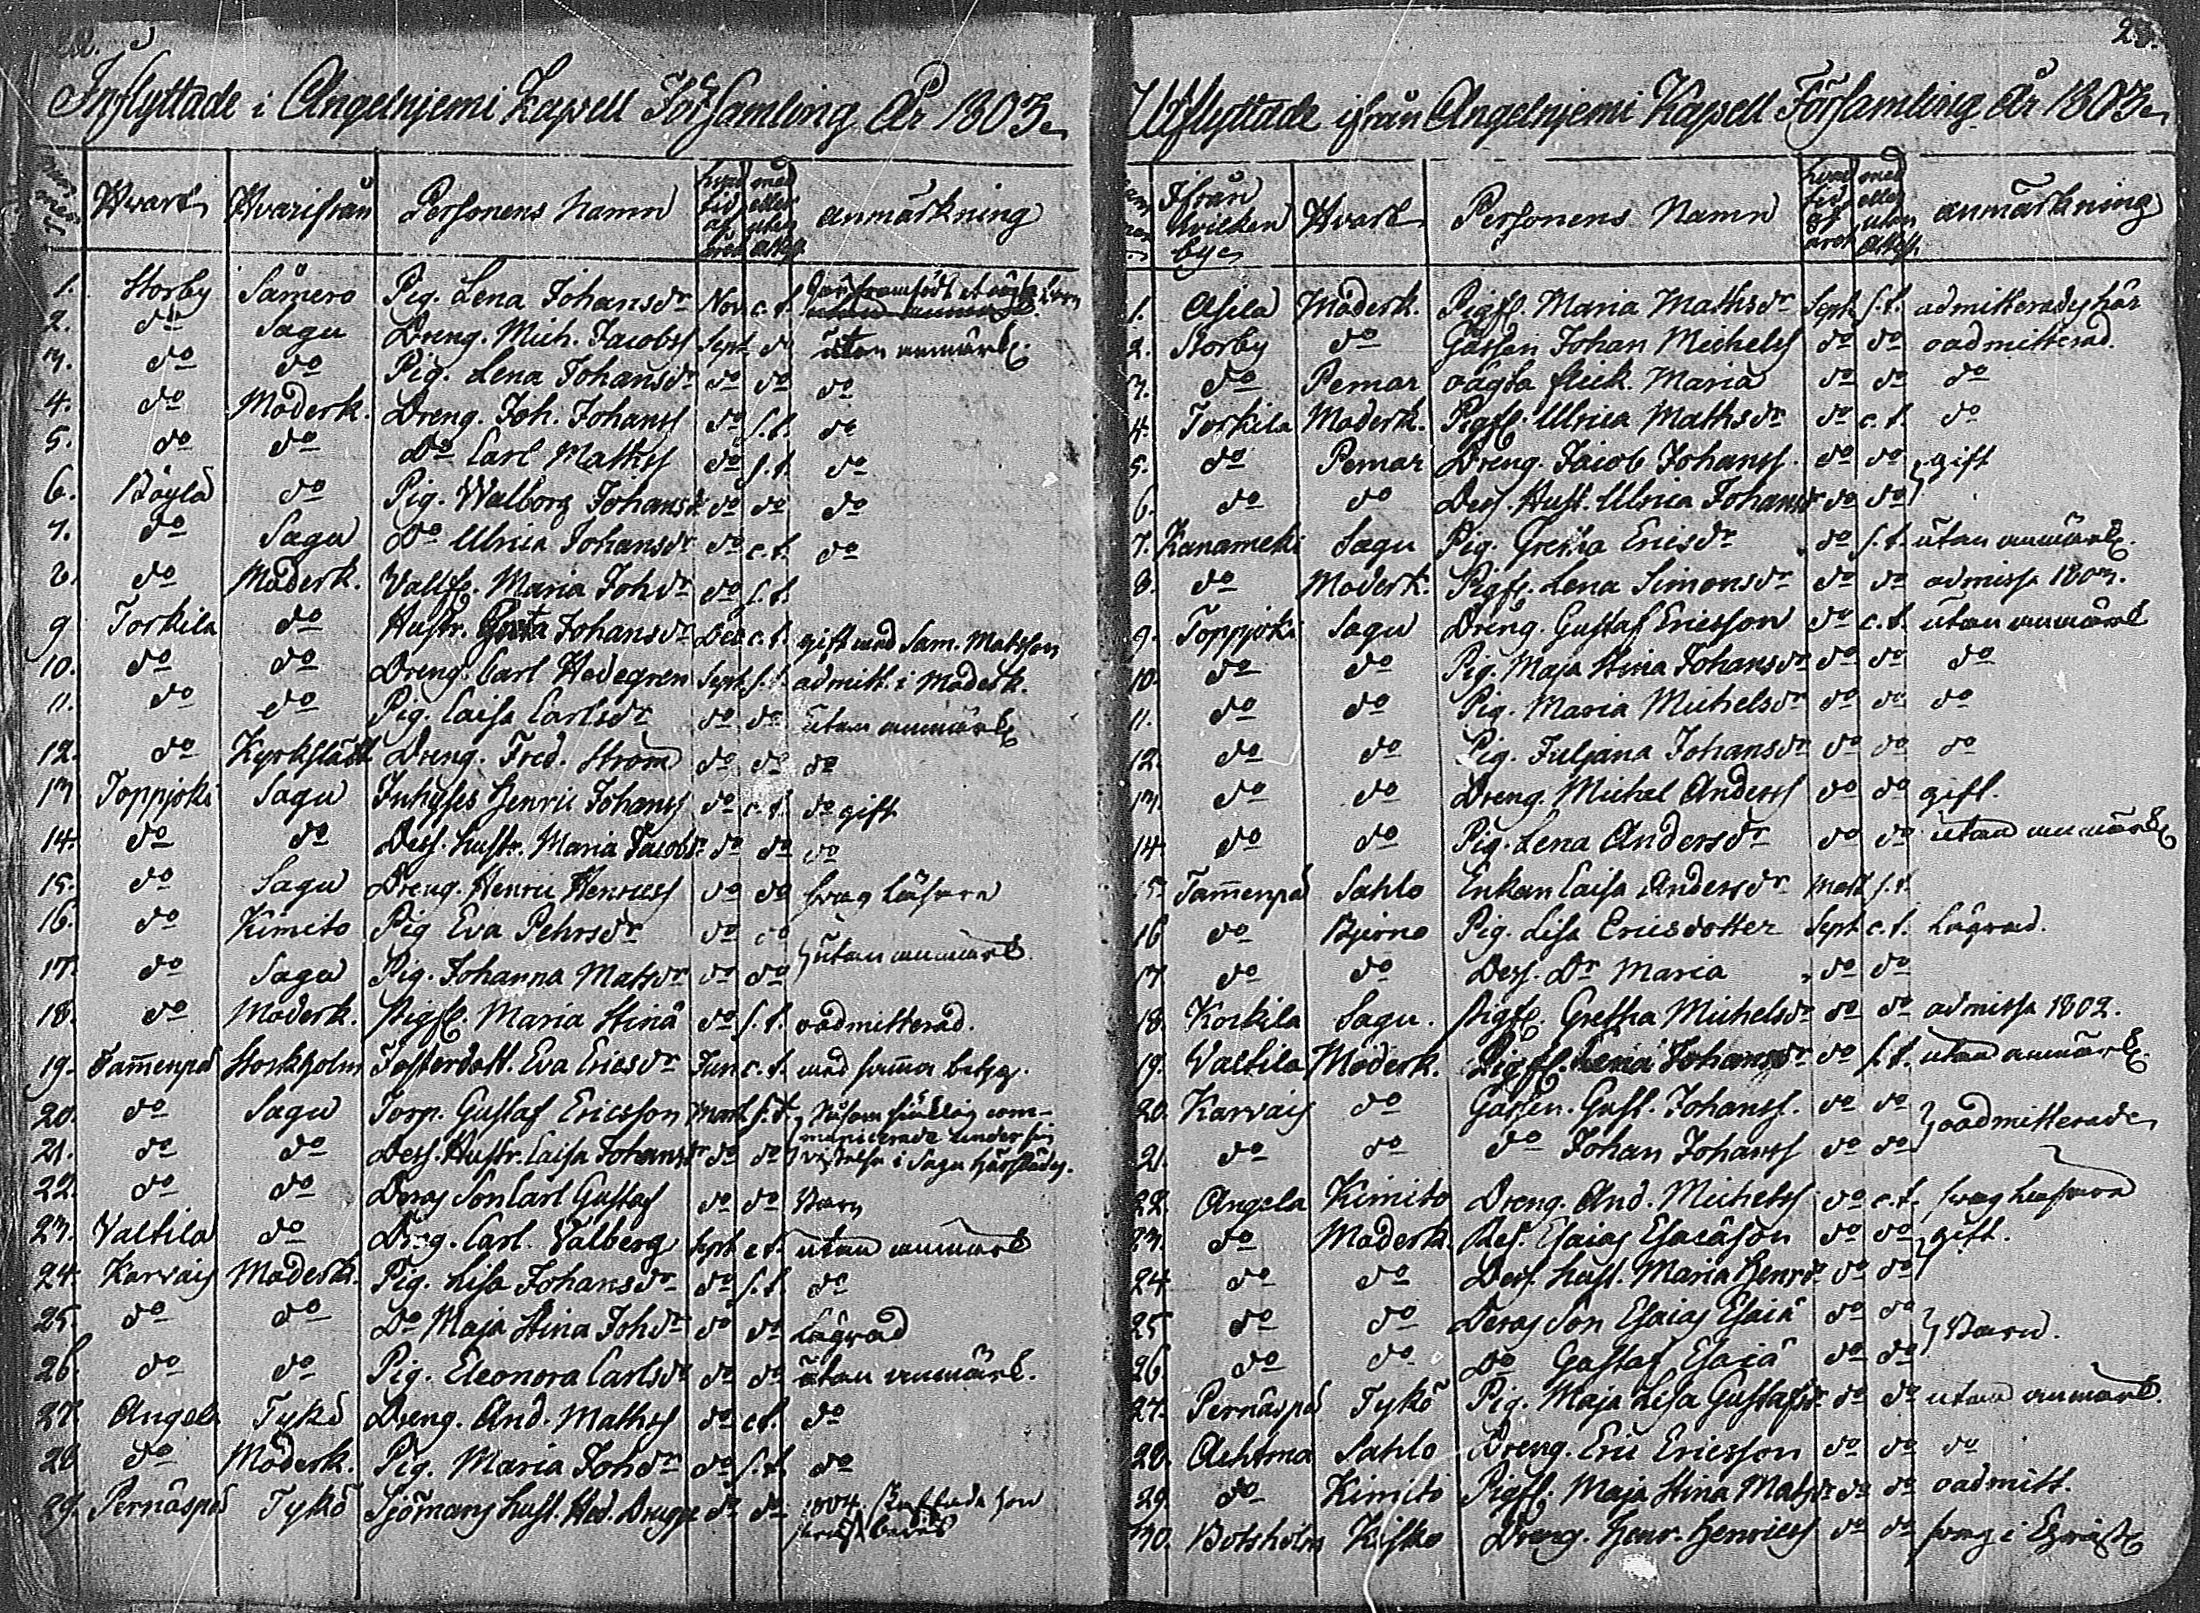 22.
Inflyttade i Angelnjemi Kapell Församling År 1803.
Hvart Hvarifrån Personens Namn hvad tid af året med eller utan attest anmärkning
1. Storby Sämero Pig. Lena Johansdr Nov. c.t.
2. do Sagu Dreng. Mich. Jacobss Sept do utan anmärk.
3. do do Pig. Lena Johansdr do do do
4. do Moderk. Dreng. Joh. Johanss do s.t. do
5. do do Do Carl Mathss do s.t. do
6. Böylä do Pig. Walborg Johansdr do do do
7. do Sagu Do Ulrica Johansdr do c.t. do
8. do Moderk. Vallfl. Maria Johdr do s.t.
9 Torkila do Hustr. Greta Johansdr Dec c.t. gift med Sam. Matsson
10. do do Dreng. Carl Hedegren Sept. s.t. admitt. i Moderk.
11. do do Pig. Caisa Carlsdr do do utan anmärk
12. do Kyrkslätt Dreng. Fred. Ström do do do
13 Toppjoki Sagu Inhyses Henric Johanss do c.t. do gift
14. do do Dess hustr. Maria Jacobsdr do do do
15. do Sagu Dreng. Henric Henricss do do svag läsare
16. do Kimito Pig Eva Pehrsdr do do utan anmärk.
17. do Sagu Pig. Johanna Matsdr do do
18. do Moderk. Pigfl. Maria Stina do s.t. oadmitterad.
19. Tam̄enpä Stockholm Fosterdott. Eva Ericsdr Jun c.t. med samma betyg.
20. do Sagu Torp. Gustaf Ericsson Mart s.t. com-
municerade under sin
21. do do Dess Hustr. Caisa Johansdr do do vistelse i Sagu härstädes.
22. do do Deras Son Carl Gustaf do do Barn
23. Valtila do Dreng. Carl Valberg Sept c.t. utan anmärk
24. Karvais Moderk. Pig. Lisa Johansdr do s.t. do
25. do do Do Maja Stina Johdr do do Lägrad
26. do do Pig. Eleonora Carlsdr do do utan anmärk.
27. Angela Tykö Dreng. And. Mathss do c.t. do
28 do Moderk. Pig. Maria Johdr do s.t. do
29. Pernäspä Tykö Sjömans hust. Hed. Drugge do do 1804. hon
bevis
23.
Utflyttade ifrån Angelnjemi Kapell Församling År 1803.
Ifrån hvilken by Hvart Personens Namn hvad tid af året med eller utan attest. anmärkning
1. Asila Moderk. Pigfl. Maria Mathsdr Sept s.t. admitterades här
2. Storby do Gåssen Johan Michelss do do oadmitterad.
3. do Pemar oägta flick. Maria do do do
4. Torkila Moderk. Pigfl. Ulrica Mathsdr do c.t. do
5. do Pemar Dreng. Jacob Johanss. do do gift
6. do do Dess. Hust. Ulrica Johansdr do do
7. Kanameki Sagu Pig. Gretha Ericsdr do s.t. utan anmärk.
8. do Moderk. Pigfl. Lena Simonsdr do do admissa 1803.
9. Toppjoki Sagu Dreng. Gustaf Ericsson do c.t. utan anmärk
10. do do Pig. Maja Stina Johansdr do do do
11. do do Pig. Maria Michelsdr do do do
12. do do Pig. Juliana Johansdr do do do
13. do do Dreng. Michel Anderss do do gift.
14 do do Pig. Lena Andersdr do do utan anmärk
15. Tam̄enpä Sahlo Enkan Caisa Andersdr Mart s.t.
16 do Bjerno Pig. Lisa Ericsdotter Sept c.t. Lägrad.
17 do do Dess. Dr Maria do do
18. Kockila Sagu. Pigfl. Gretha Michelsdr do do admissa 1802.
19. Valtila Moderk. Pigfl. Lena Johansdr do s.t. utan anmärk.
20. Karvais do Gåssen. Gust. Johanss. do do oadmitterade
21. do do do Johan Johanss do do
22. Angela Kimito Dreng. And. Michelss do c.t. svag läsare
23. do Moderk. Esaias Esaiäson do do gift.
24 do do Dess hust. Maria Henrsdr do do
25 do do Deras Son Esaias Esaiä do do Barn.
26. do do Do Gustaf Esaiä do do
27. Pernäspä Tykö Pig. Maja Lisa Gustafsdr do do utan anmärk.
28. Achtma Sahlo Dreng. Eric Ericsson do do do
29. do Kimito Pigfl. Maja Stina Matsdr do do oadmitt.
30. Botsholm Kisko Dreng. Henr. Henricss do do svag i